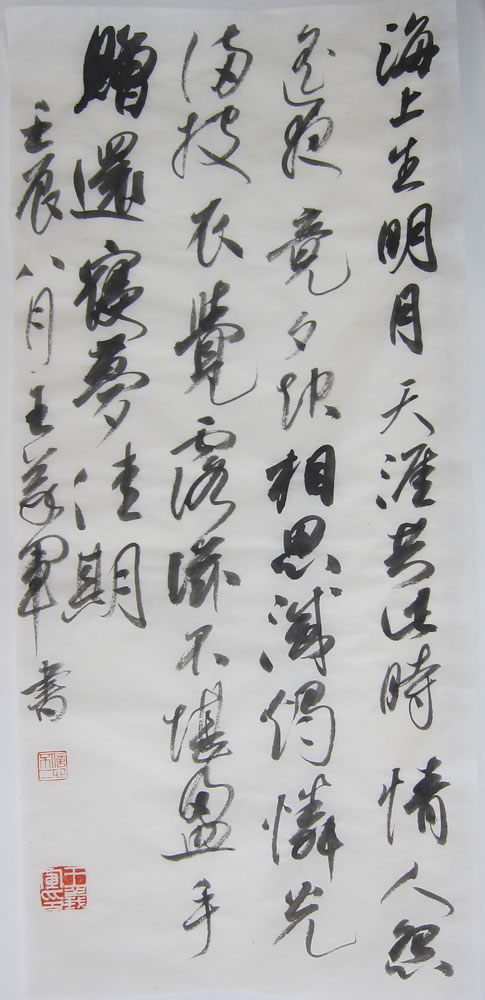 海上生明月天涯共此時情人怨
遙夜竟夕起相思滅燭憐光
滿披衣覺露滋不堪盈手
贈還寢夢佳期
壬辰八月王義軍書
王義軍印